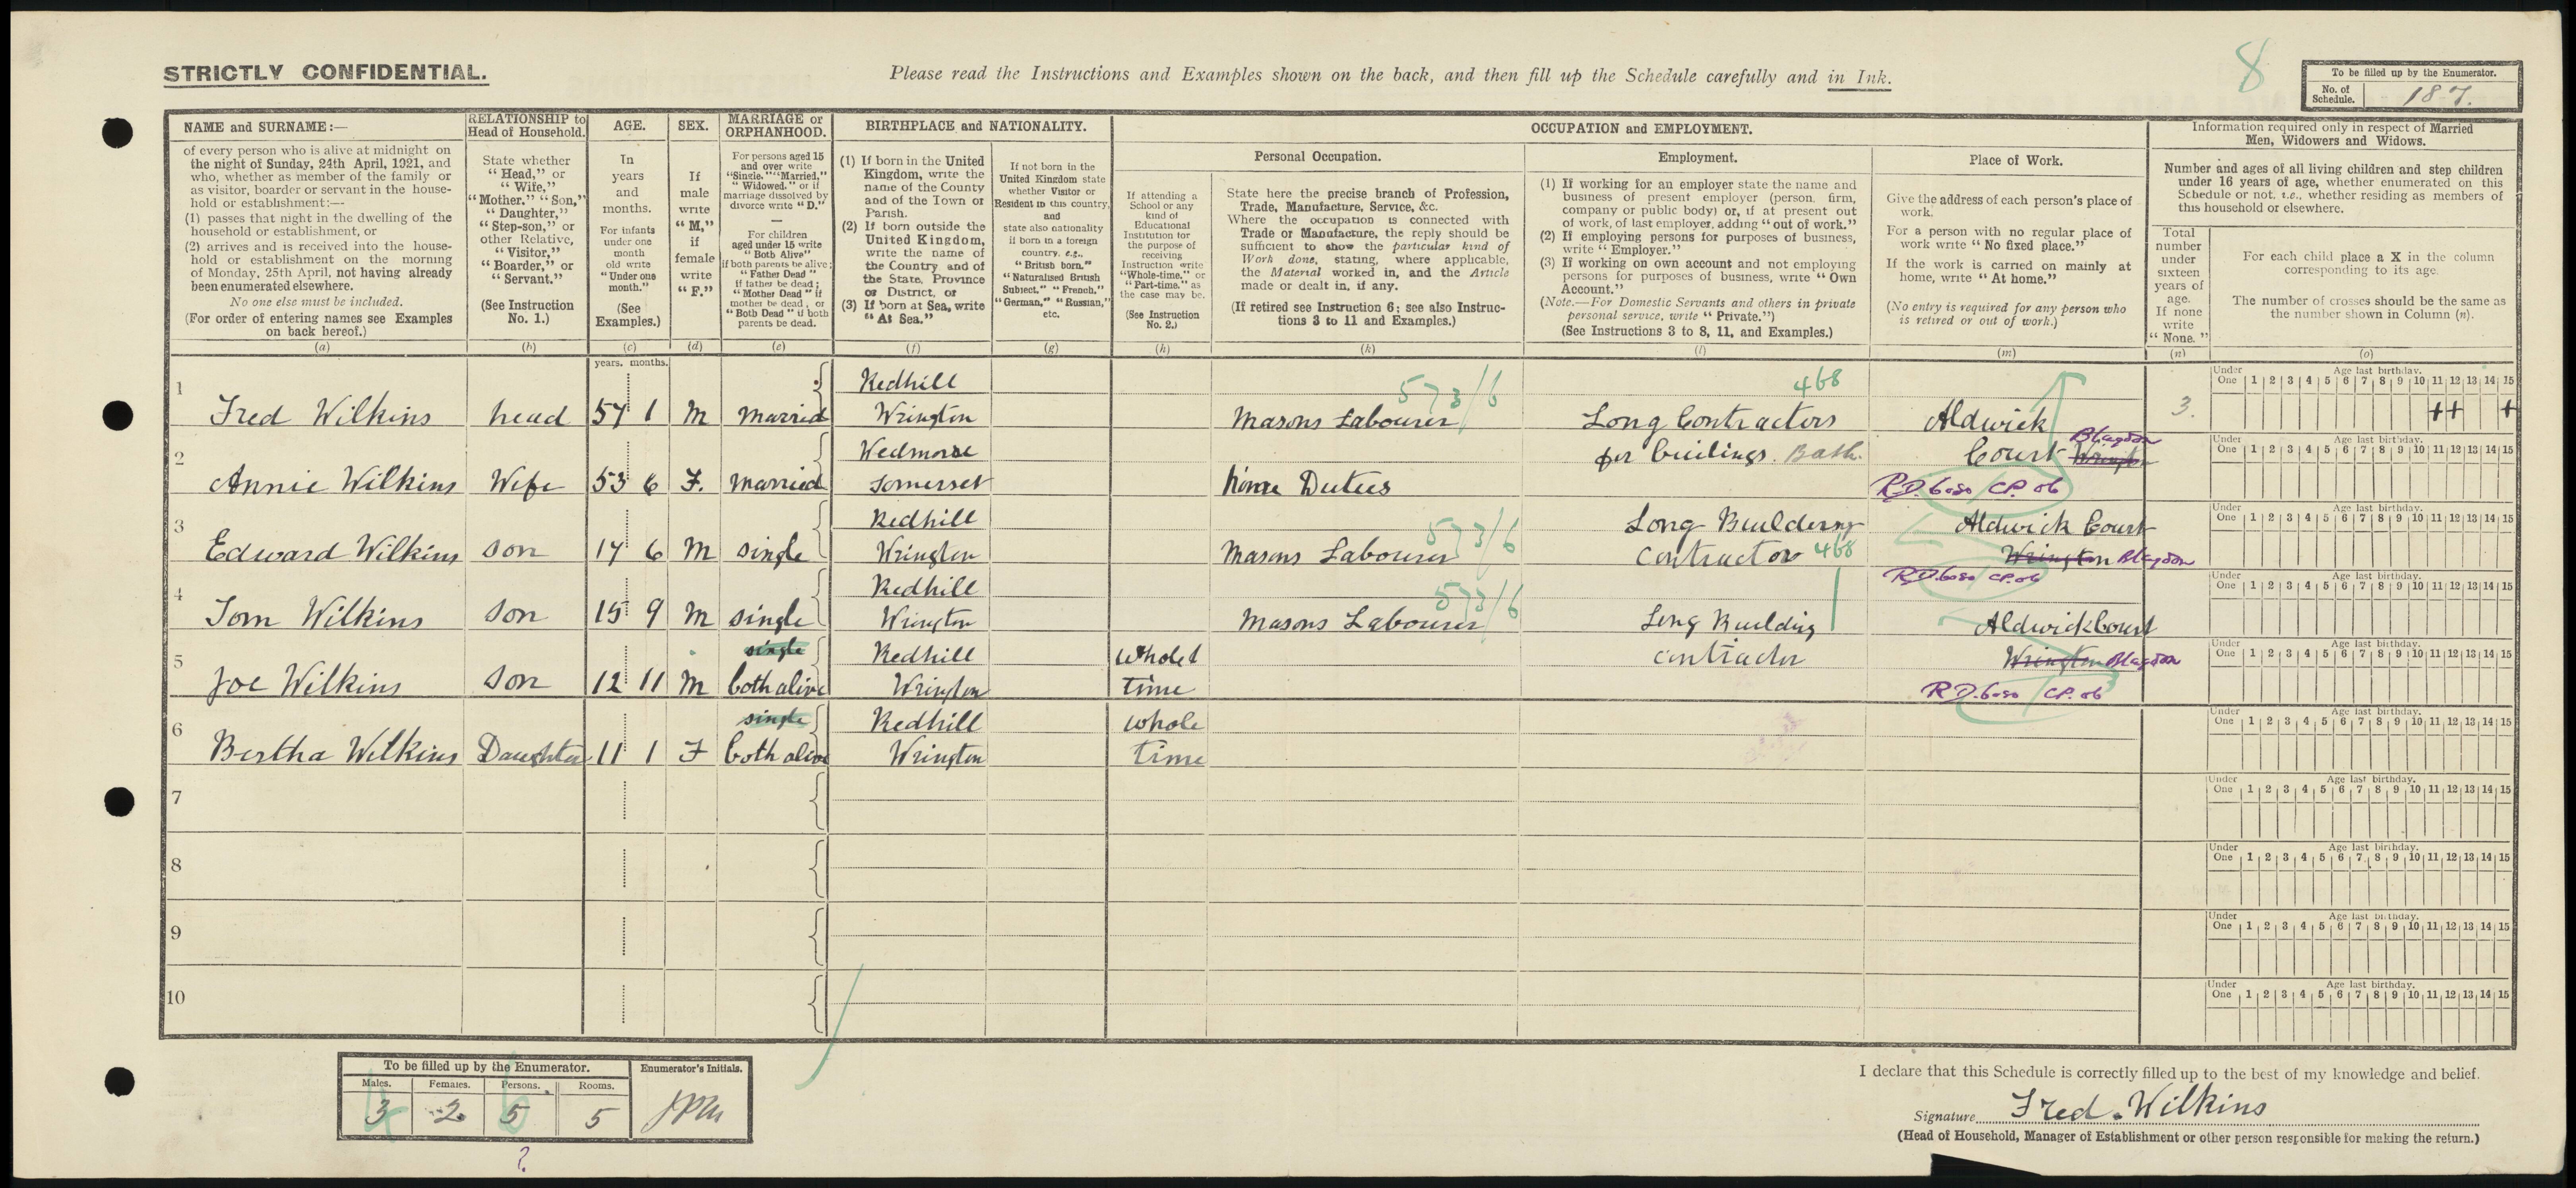 8
STRICTLY CONFIDENTIAL.
Please read the Instructions and Examples shown on the back, and then fill up the Schedule carefully and in Ink.
To be filled up by the Enumerator.
No. of Schedule. 187.
NAME and SURNAME:—
of every person who is alive at midnight on
the night of Sunday, 24th April, 1921, and
who, whether as member of the family or
as visitor, boarder or servant in the house-
hold or establishment:—
(1) passes that night in the dwelling of the
household or establishment, or
(2) arrives and is received into the house-
hold or establishment on the morning
of Monday, 25th April, not having already
been enumerated elsewhere.
No one else must be included.
(For order of entering names see Examples
on back hereof.)
(a)
RELATIONSHIP to
Head of Household.
State whether
"Head," or
"Wife,"
"Mother." "Son,"
"Daughter,"
"Step-son," or
other Relative,
"Visitor,"
"Boarder," or
"Servant."
(See Instruction
No. 1.)
(b)
AGE.
In
years
and
months.
For infants
under one
month
old write
"Under one
month."
(See
Examples.)
(c)
SEX.
If
male
write
"M,"
if
female
write
"F."
(d)
MARRIAGE or
ORPHANHOOD.
For persons aged 15
and over write
"Single." "Married,"
"Widowed." or if
marriage dissolved by
divorce write "D."
—
For children
aged under 15 write
"Both Alive"
if both parents be alive;
"Father Dead"
if father be dead;
"Mother Dead" if
mother be dead, or
"Both Dead" if both
parents be dead.
(e)
BIRTHPLACE and NATIONALITY.
(1) If born in the United
Kingdom, write the
name of the County
and of the Town or
Parish.
(2) If born outside the
United Kingdom,
write the name of
the Country and of
the State, Province
or District, or
(3) If born at Sea, write
"At Sea."
(f)
If not born in the
United Kingdom state
whether Visitor or
Resident in this country,
and
state also nationality
if born in a foreign
country, e.g.,
"British born,"
"Naturalised British
Subject," "French,"
"German," "Russian,"
etc.
(g)
OCCUPATION and EMPLOYMENT.
If attending a
School or any
kind of
Educational
Institution for
the purpose of
receiving
Instruction write
"Whole-time," or
"Part-time," as
the case may be.
(See Instruction
No. 2.)
(h)
Personal Occupation.
State here the precise branch of Profession,
Trade, Manufacture, Service, &c.
Where the occupation is connected with
Trade or Manufacture, the reply should be
sufficient to show the particular kind of
Work done, stating, where applicable,
the Material worked in, and the Article
made or dealt in, if any.
(If retired see Instruction 6; see also Instruc-
tions 3 to 11 and Examples.)
(k)
Employment.
(1) If working for an employer state the name and
business of present employer (person, firm,
company or public body) or, if at present out
of work, of last employer, adding "out of work."
(2) If employing persons for purposes of business,
write "Employer."
(3) If working on own account and not employing
persons for purposes of business, write "Own
Account."
(Note.—For Domestic Servants and others in private
personal service, write "Private.")
(See Instructions 3 to 8, 11, and Examples.)
(l)
Place of Work.
Give the address of each person's place of
work.
For a person with no regular place of
work write "No fixed place."
If the work is carried on mainly at
home, write "At home."
(No entry is required for any person who
is retired or out of work.)
(m)
Information required only in respect of Married
Men, Widowers and Widows.
Number and ages of all living children and step children
under 16 years of age, whether enumerated on this
Schedule or not, i.e., whether residing as members of
this household or elsewhere.
Total
number
under
sixteen
years of
age.
If none
write
"None."
(n)
For each child place a X in the column
corresponding to its age.
The number of crosses should be the same as
the number shown in Column (n).
(o)
years. months.
Under One Age last birthday. 1 2 3 4 5 6 7 8 9 10 11 12 13 14 15
1 Fred Wilkins head 57 1 M married Redhill Wrington Masons Labourer 573/6 Long Contractors 468 Aldwick 3. + + +
for builings. Bath. Court Wrington Blagdon
2 Annie Wilkins Wife 53 6 F. married Wedmore Somerset home Duties R.D. 6080/CP. 06
3 Edward Wilkins son 17 6 M single Redhill Wrington Masons Labourer 573/6 Long Buildersy contractor 468 Aldwick Court Wrington Blagdon
R.D. 6080/CP. 06
4 Tom Wilkins son 15 9 M single Redhill Wrington Masons Labourer 573/6 Long Building contractor Aldwick Court Wrington Blagdon
5 Joe Wilkins son 12 11 M single both alive Redhill Wrington whole time R.D. 6080/CP. 06
6 Bertha Wilkins Daughter 11 1 F single both alive Redhill Wrington whole time
7
8
9
10
To be filled up by the Enumerator.
Enumerator's Initials.
Males. Females. Persons. Rooms.
3 2 5 5
4 6
?
I declare that this Schedule is correctly filled up to the best of my knowledge and belief.
Signature Fred. Wilkins
(Head of Household, Manager of Establishment or other person responsible for making the return.)